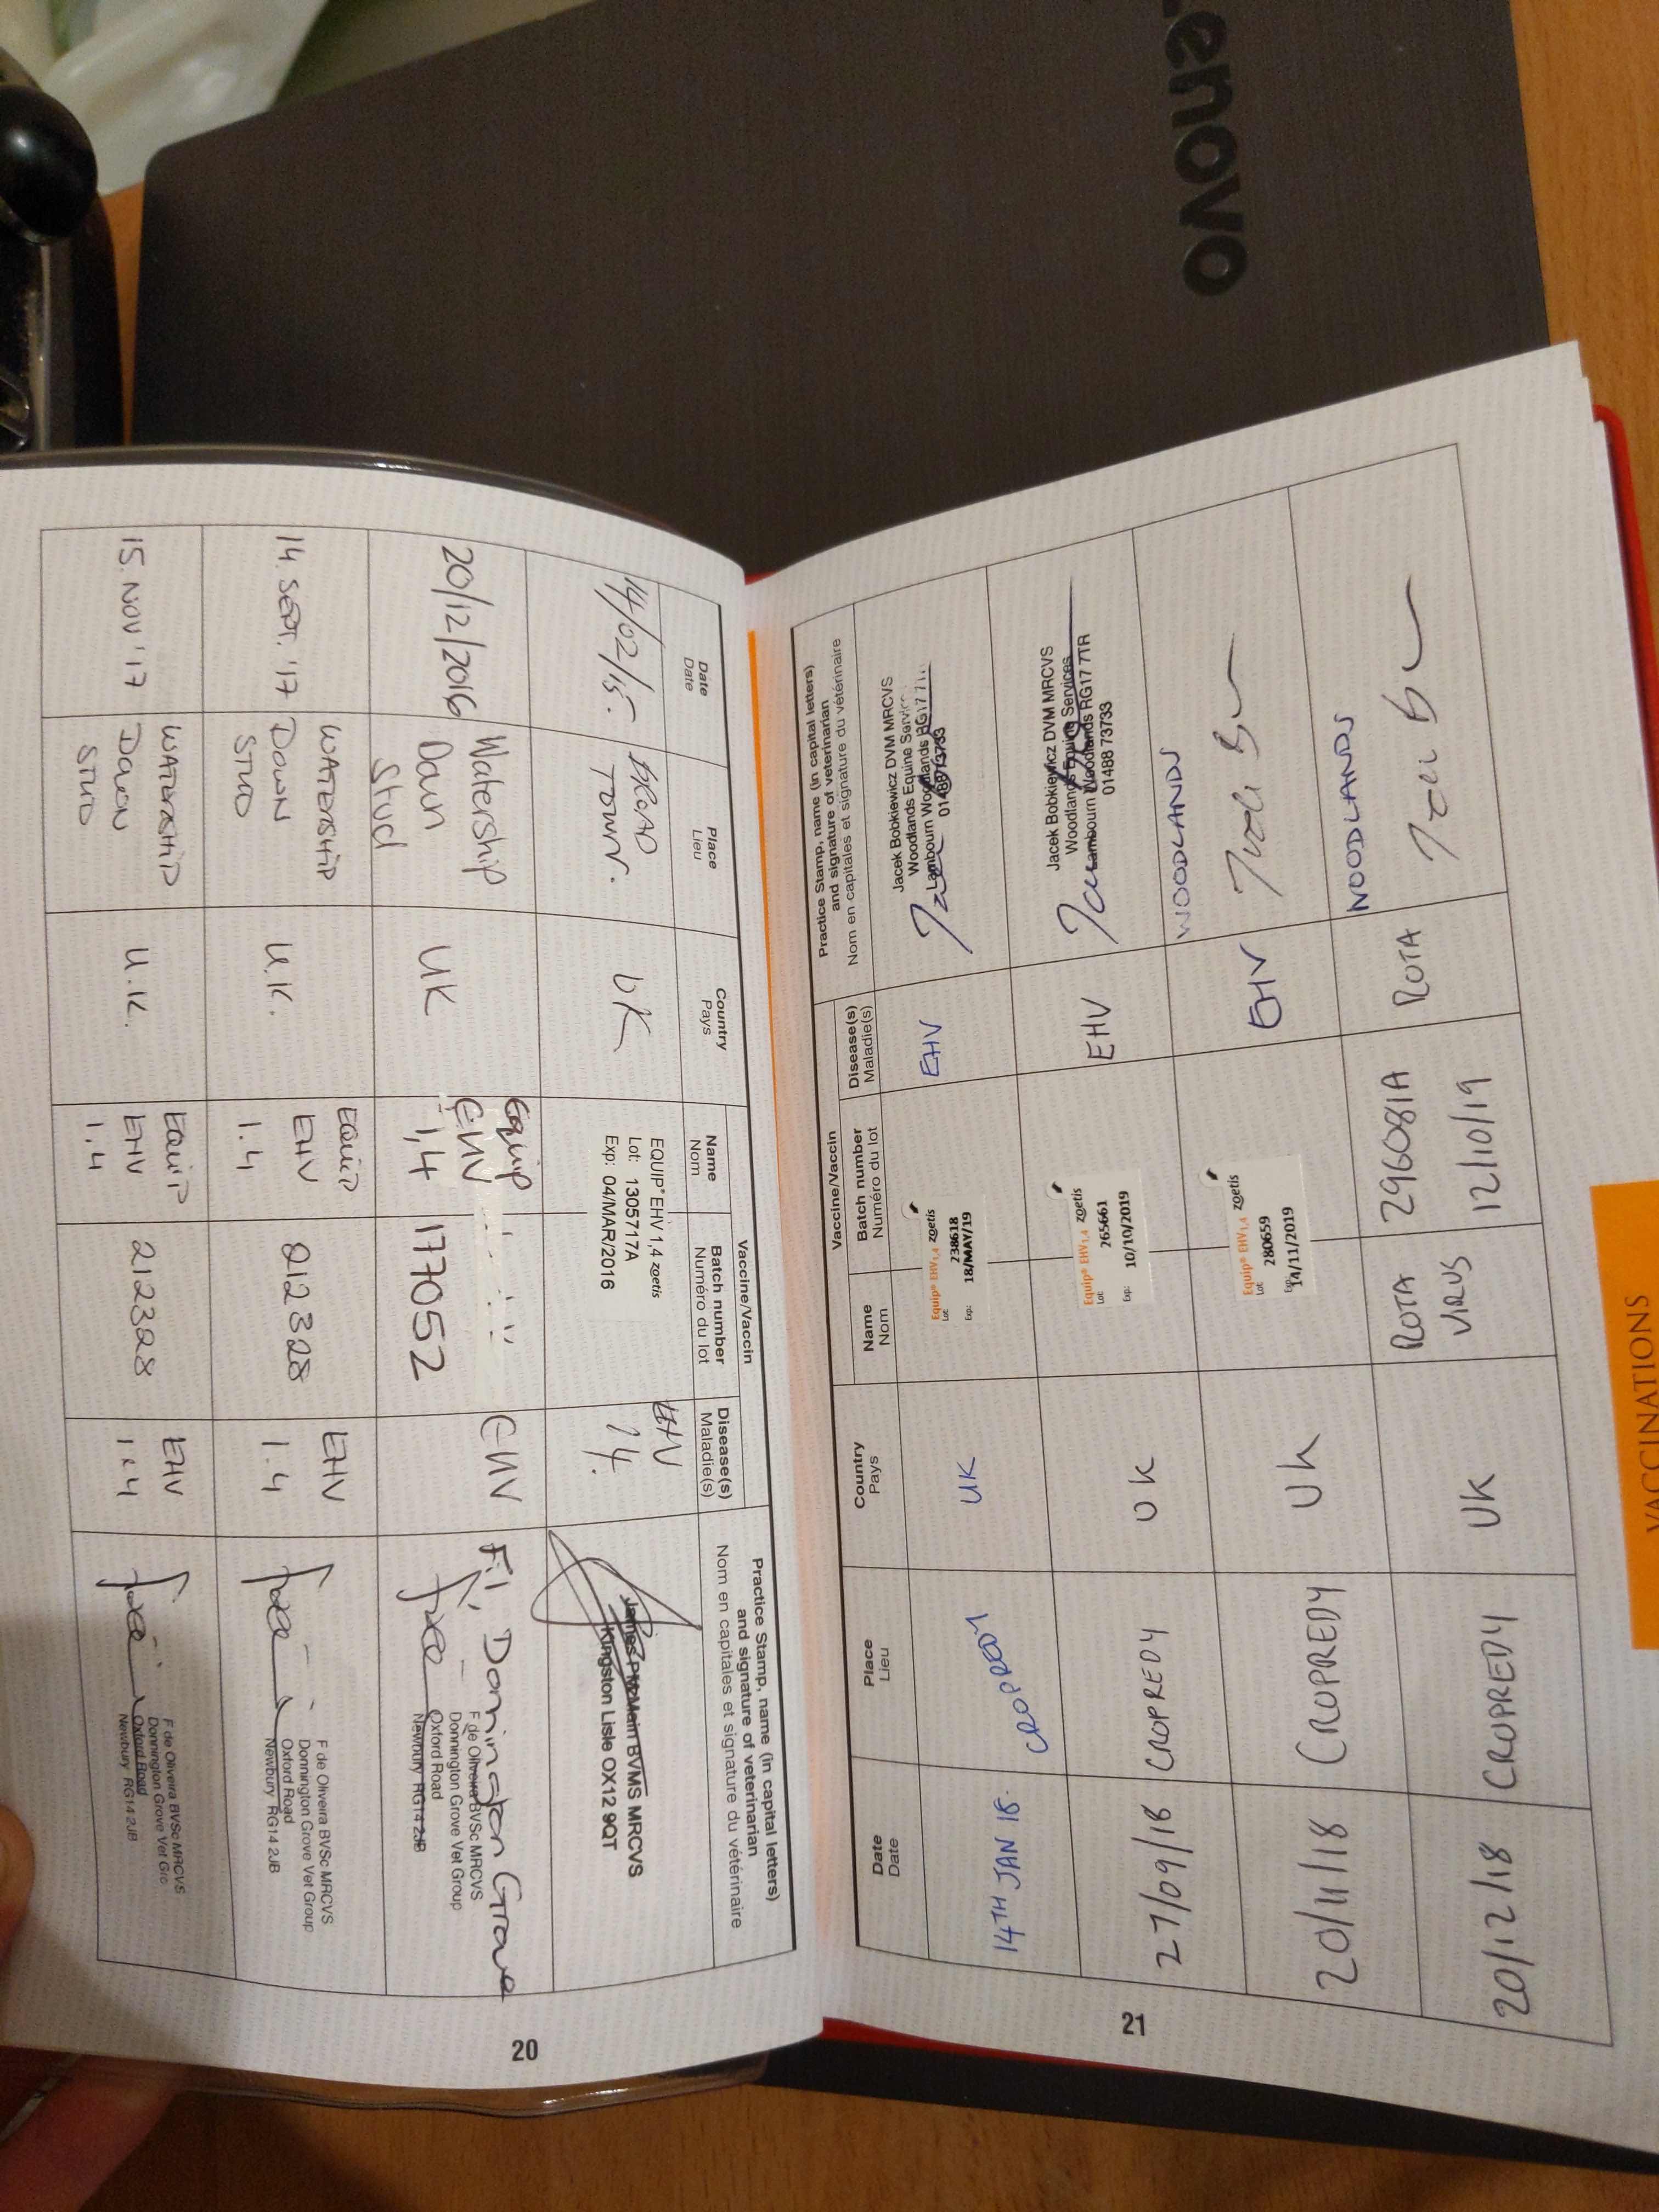 Lenovo
Date
Date
Place
Lieu
Country
Pays
Vaccine/Vaccin
Name
Nom
Batch number
Numéro du lot
Disease(s)
Maladie(s)
Practice Stamp, name (in capital letters)
and signature of veterinarian
Nom en capitales et signature du vétérinaire
14/02/15.
BROAD
TOWN.
UK
EQUIP® EHV 1,4 zoetis
Lot: 1305717A
Exp: 04/MAR/2016
EHV
14.
James P McMain BVMS MRCVS
Kingston Lisle OX12 9QT
20/12/2016
Watership
Down
Stud
UK
Equip
EHV
1,4
177052
EHV
F.I, Donnington Grove
F de Oliveira BVSc MRCVS
Donnington Grove Vet Group
Oxford Road
Newbury RG14 2JB
14. SEPT. '17
WATERSHIP
DOWN
STUD
U.K.
EQUIP
EHV
1.4
212328
EHV
1.4
F de Oliveira BVSc MRCVS
Donnington Grove Vet Group
Oxford Road
Newbury RG14 2JB
15. NOV '17
WATERSHIP
DOWN
STUD
U.K.
EQUIP
EHV
1.4
212328
EHV
1.4
F de Oliveira BVSc MRCVS
Donnington Grove Vet Gro
Oxford Road
Newbury RG14 2JB
20
Date
Date
Place
Lieu
Country
Pays
Vaccine/Vaccin
Name
Nom
Batch number
Numéro du lot
Disease(s)
Maladie(s)
Practice Stamp, name (in capital letters)
and signature of veterinarian
Nom en capitales et signature du vétérinaire
14TH JAN 18.
CROPREDY
UK
Equip® EHV1,4 zoetis
Lot: 238618
Exp: 18/MAY/19
EHV
Jacek Bobkiewicz DVM MRCVS
Woodlands Equine Servic
Lambourn Woodlands RG17 7
01488 73733
27/09/18
CROPREDY
UK
Equip® EHV1,4 zoetis
Lot: 265661
Exp: 10/10/2019
EHV
Jacek Bobkiewicz DVM MRCVS
Woodlands Equine Services
Lambourn Woodlands RG17 7TR
01488 73733
20/11/18
CROPREDY
UK
Equip® EHV1,4 zoetis
Lot: 280659
Exp: 14/11/2019
EHV
WOODLANDS
20/12/18
CROPREDY
UK
ROTA
VIRUS
296081A
12/10/19
ROTA
WOODLANDS
21
VACCINATIONS